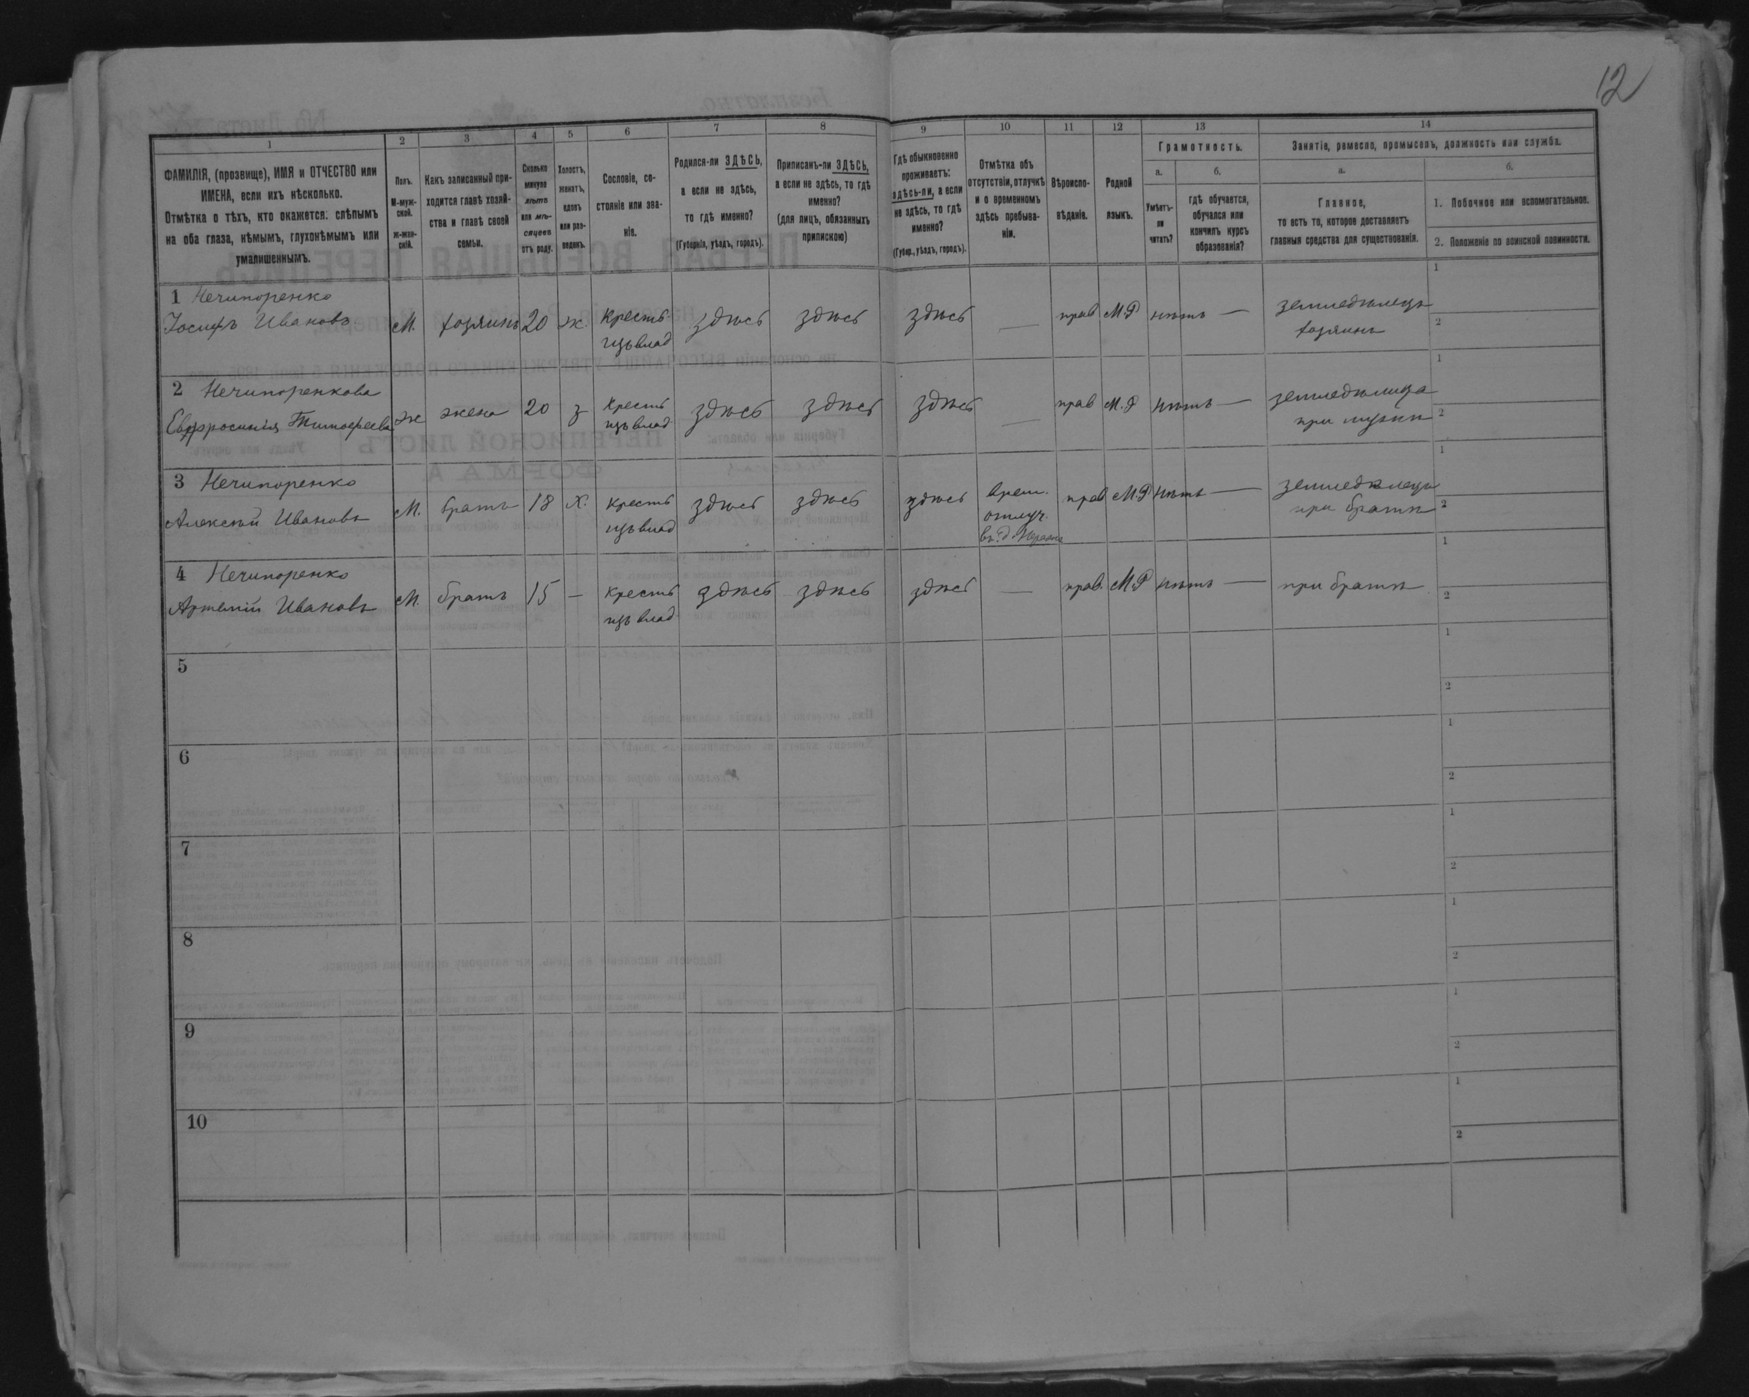 12
1 2 3 4 5 6 7 8 9 10 11 12 13 14
ФАМИЛІЯ, (прозвище), ИМЯ и ОТЧЕСТВО или
ИМЕНА, если ихъ нѣсколько.
Отмѣтка о тѣхъ, кто окажется: слѣпымъ
на оба глаза, нѣмымъ, глухонѣмымъ или
умалишеннымъ.
Полъ.
М-муж-
ской.
Ж-жен-
скій.
Какъ записанный при-
ходится главѣ хозяй-
ства и главѣ своей
семьи.
Сколько
минуло
лѣтъ
или мѣ-
сяцевъ
отъ роду.
Холостъ,
женатъ,
вдовъ
или раз-
веденъ.
Сословіе, со-
стояніе или зва-
ніе.
Родился-ли ЗДѢСЬ,
а если не здѣсь,
то гдѣ именно?
(Губернія, уѣздъ, городъ).
Приписанъ-ли ЗДѢСЬ,
а если не здѣсь, то гдѣ
именно?
(для лицъ, обязанныхъ
припискою)
Гдѣ обыкновенно
проживаетъ:
здѣсь-ли, а если
не здѣсь, то гдѣ
именно?
(Губер., уѣздъ, городъ).
Отмѣтка объ
отсутствіи, отлучкѣ
и о временномъ
здѣсь пребыва-
ніи.
Вѣроиспо-
вѣданіе.
Родной
языкъ.
Грамотность.
а.
Умѣетъ-
ли
читать?
б.
гдѣ обучается,
обучался или
кончилъ курсъ
образованія?
Занятіе, ремесло, промыселъ, должность или служба.
а.
Главное,
то есть то, которое доставляетъ
главныя средства для существованія.
б.
1. Побочное или вспомогательное.
2. Положеніе по воинской повинности.
1 Нечипоренко
Іосифъ Ивановъ М. хозяинъ 20 ж. Крестьян. здѣсь здѣсь здѣсь — прав М.Р нѣтъ — земледѣлецъ
изъ влад хозяинъ
1
2
2 Нечипоренкова
Евфросинія Тимофеева ж жена 20 з Крестьян здѣсь здѣсь здѣсь — прав М.Р нѣтъ — земледѣлица
изъ влад при мужѣ
1
2
3 Нечипоренко
Алексѣй Ивановъ М. братъ 18 Х. Крестьян здѣсь здѣсь здѣсь врем. прав М.Р нѣтъ — земледѣлецъ
изъ влад отлуч. при братѣ
1
2
4 Нечипоренко
Артемій Ивановъ М. братъ 15 — Крестьян здѣсь здѣсь здѣсь — прав. М.Р нѣтъ — при братѣ
изъ влад
1
2
5
1
2
6
1
2
7
1
2
8
1
2
9
1
2
10
1
2